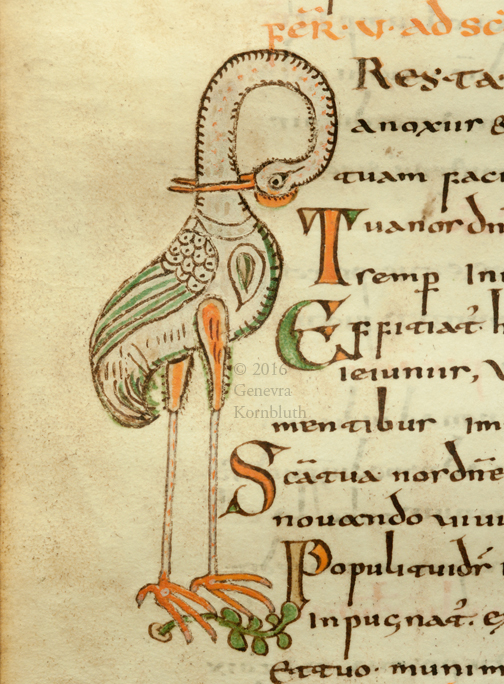 FER̄·V·AD SC̄
Res·ta
anoxiis
quam faci
Tua nos dn̄
semp̄
Efficiat·
ieiuniis,
mentibus im
Sc̄a tua nos dn̄e
novando vivi
Populi tui ds̄
inpugnat̄.
Et tuo· munim
© 2016
Genevra
Kornbluth